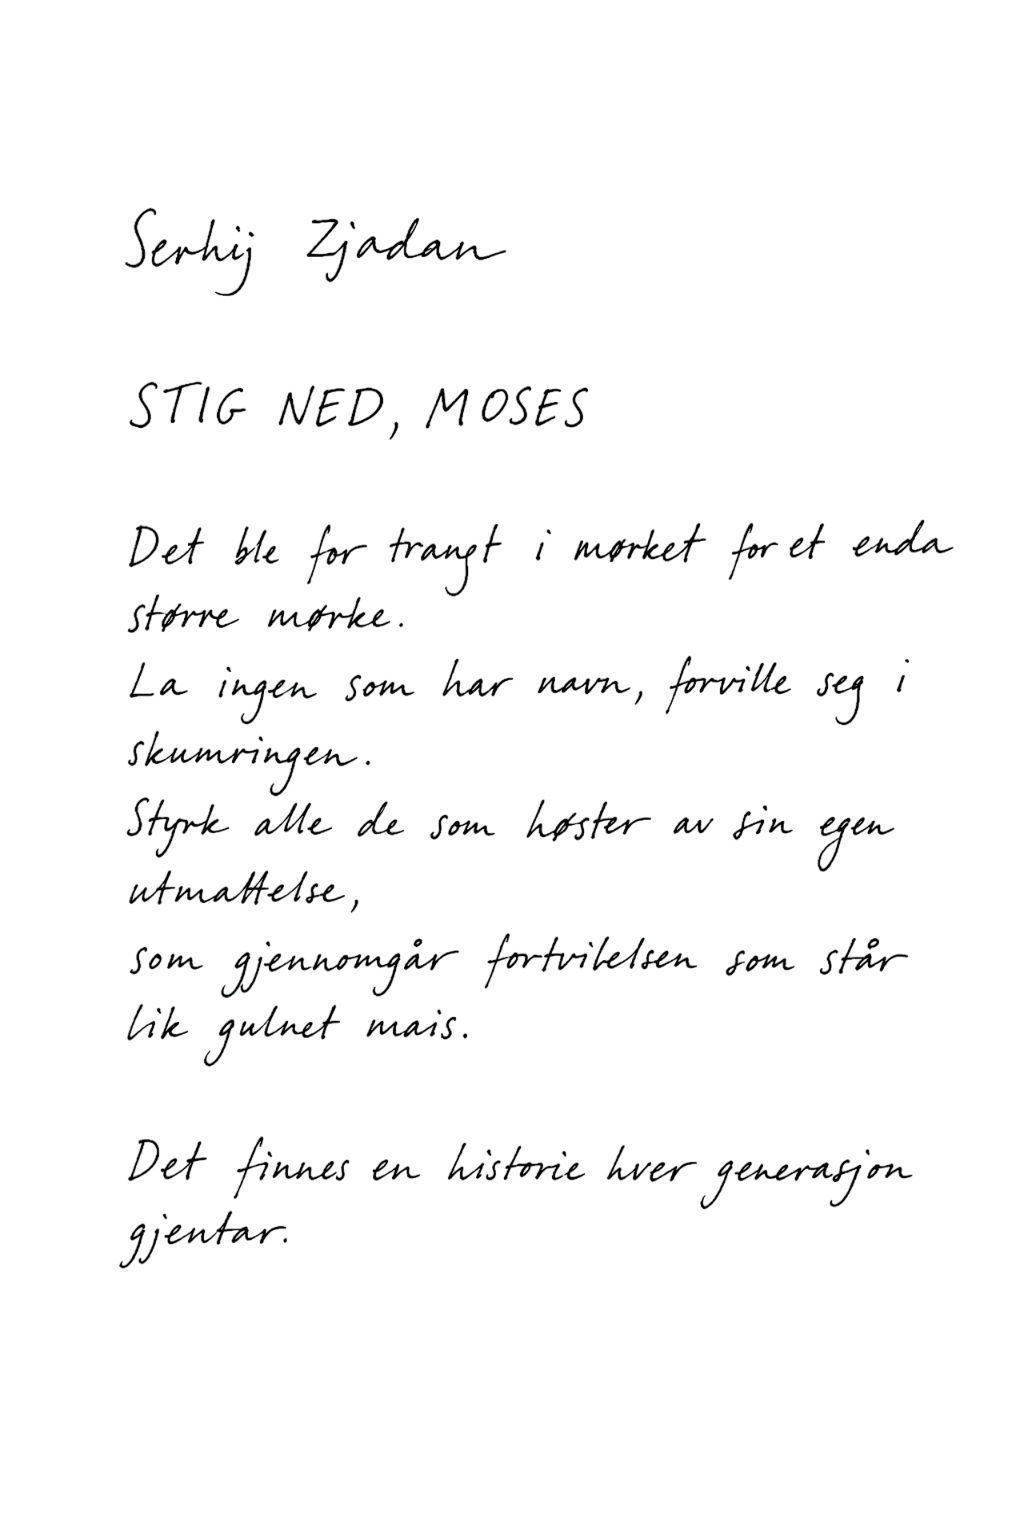 Serhij Zjadan
STIG NED, MOSES
Det ble for trangt i mørket for et enda
større mørke.
La ingen som har navn, forville seg i
skumringen.
Styrk alle de som høster av sin egen
utmattelse,
som gjennomgår fortvilelsen som står
lik gulnet mais.
Det finnes en historie hver generasjon
gjentar.